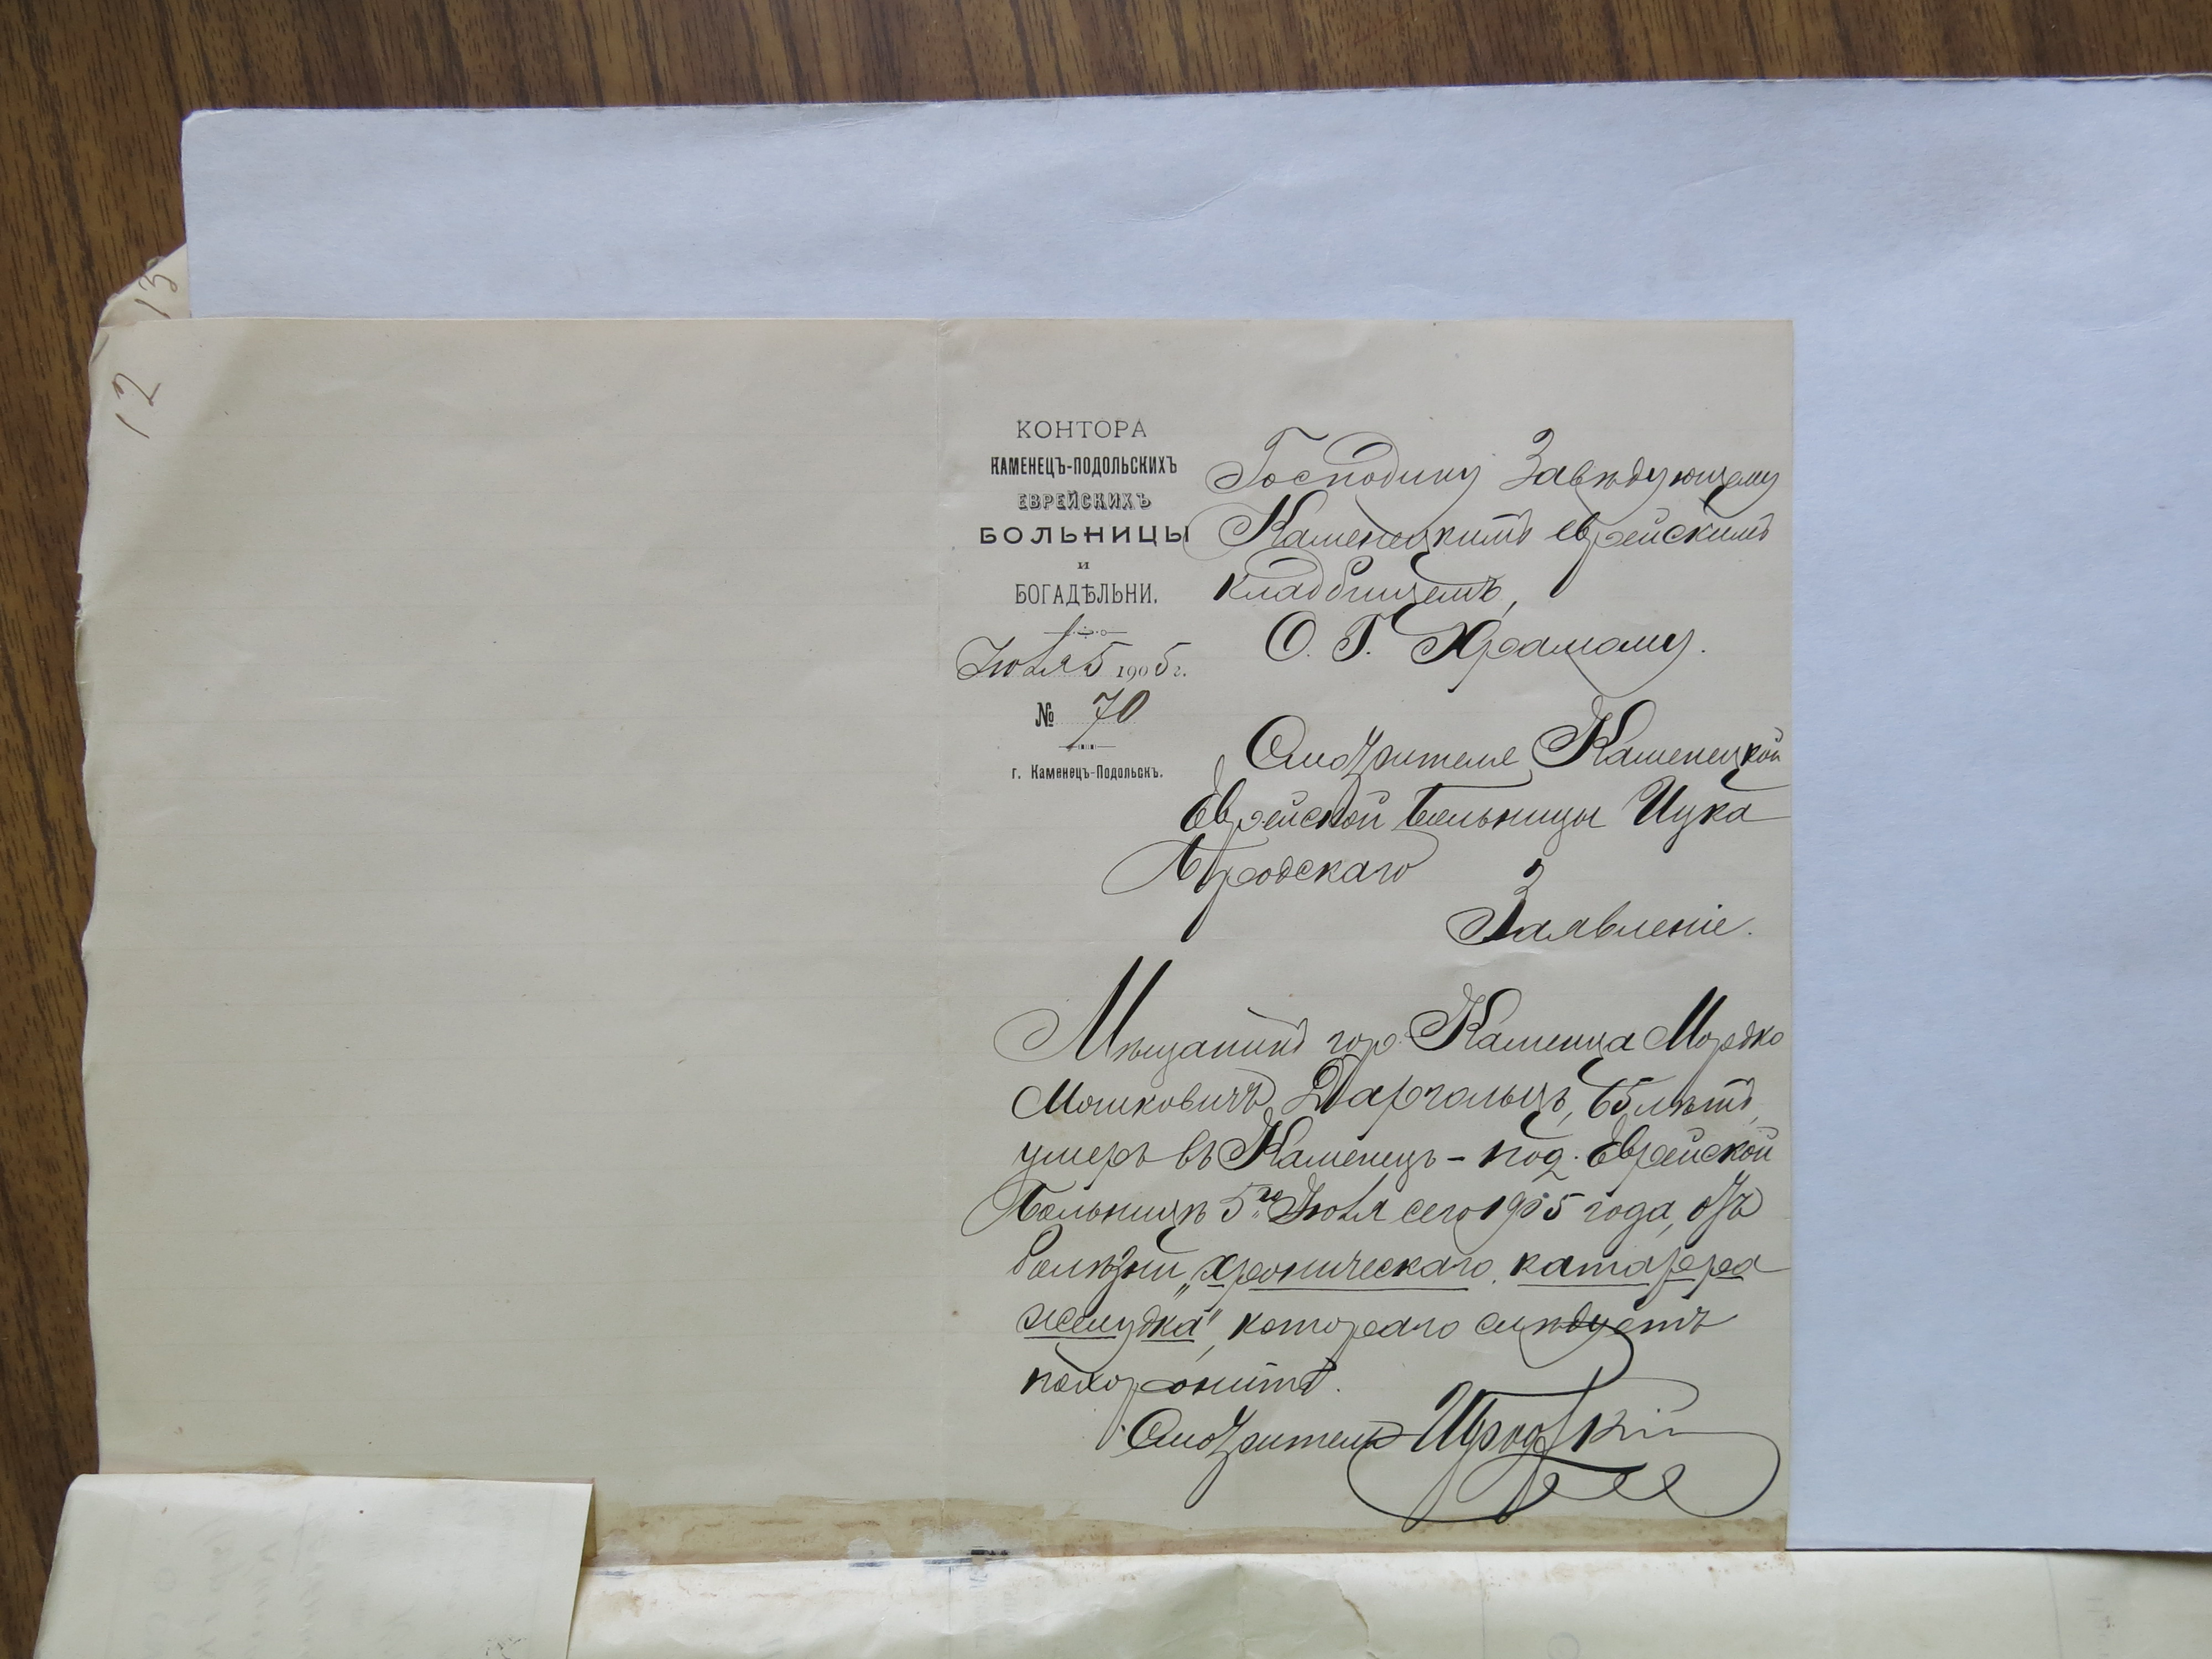 13
12
КОНТОРА
КАМЕНЕЦЪ-ПОДОЛЬСКИХЪ
ЕВРЕЙСКИХЪ
БОЛЬНИЦЫ
и
БОГАДѢЛЬНИ.
Іюля 5 1905 г.
№ 70
г. Каменецъ-Подольскъ.
Господину Завѣдующему
Каменецкимъ еврейскимъ
кладбищемъ,
О. Г. Храмому.
Смотрителя Каменецкой
Еврейской Больницы Ицка
Бродскаго
Заявленіе.
Мѣщанинъ гор. Каменца Мордко
Мошковичъ Даргольцъ, 65 лѣтъ,
умеръ въ Каменецъ-Под. Еврейской
Больницѣ 5го Іюля сего 1905 года, отъ
болѣзни „хроническаго катарра
желудка", котораго слѣдуетъ
похоронить.
Смотритель ИБродскій